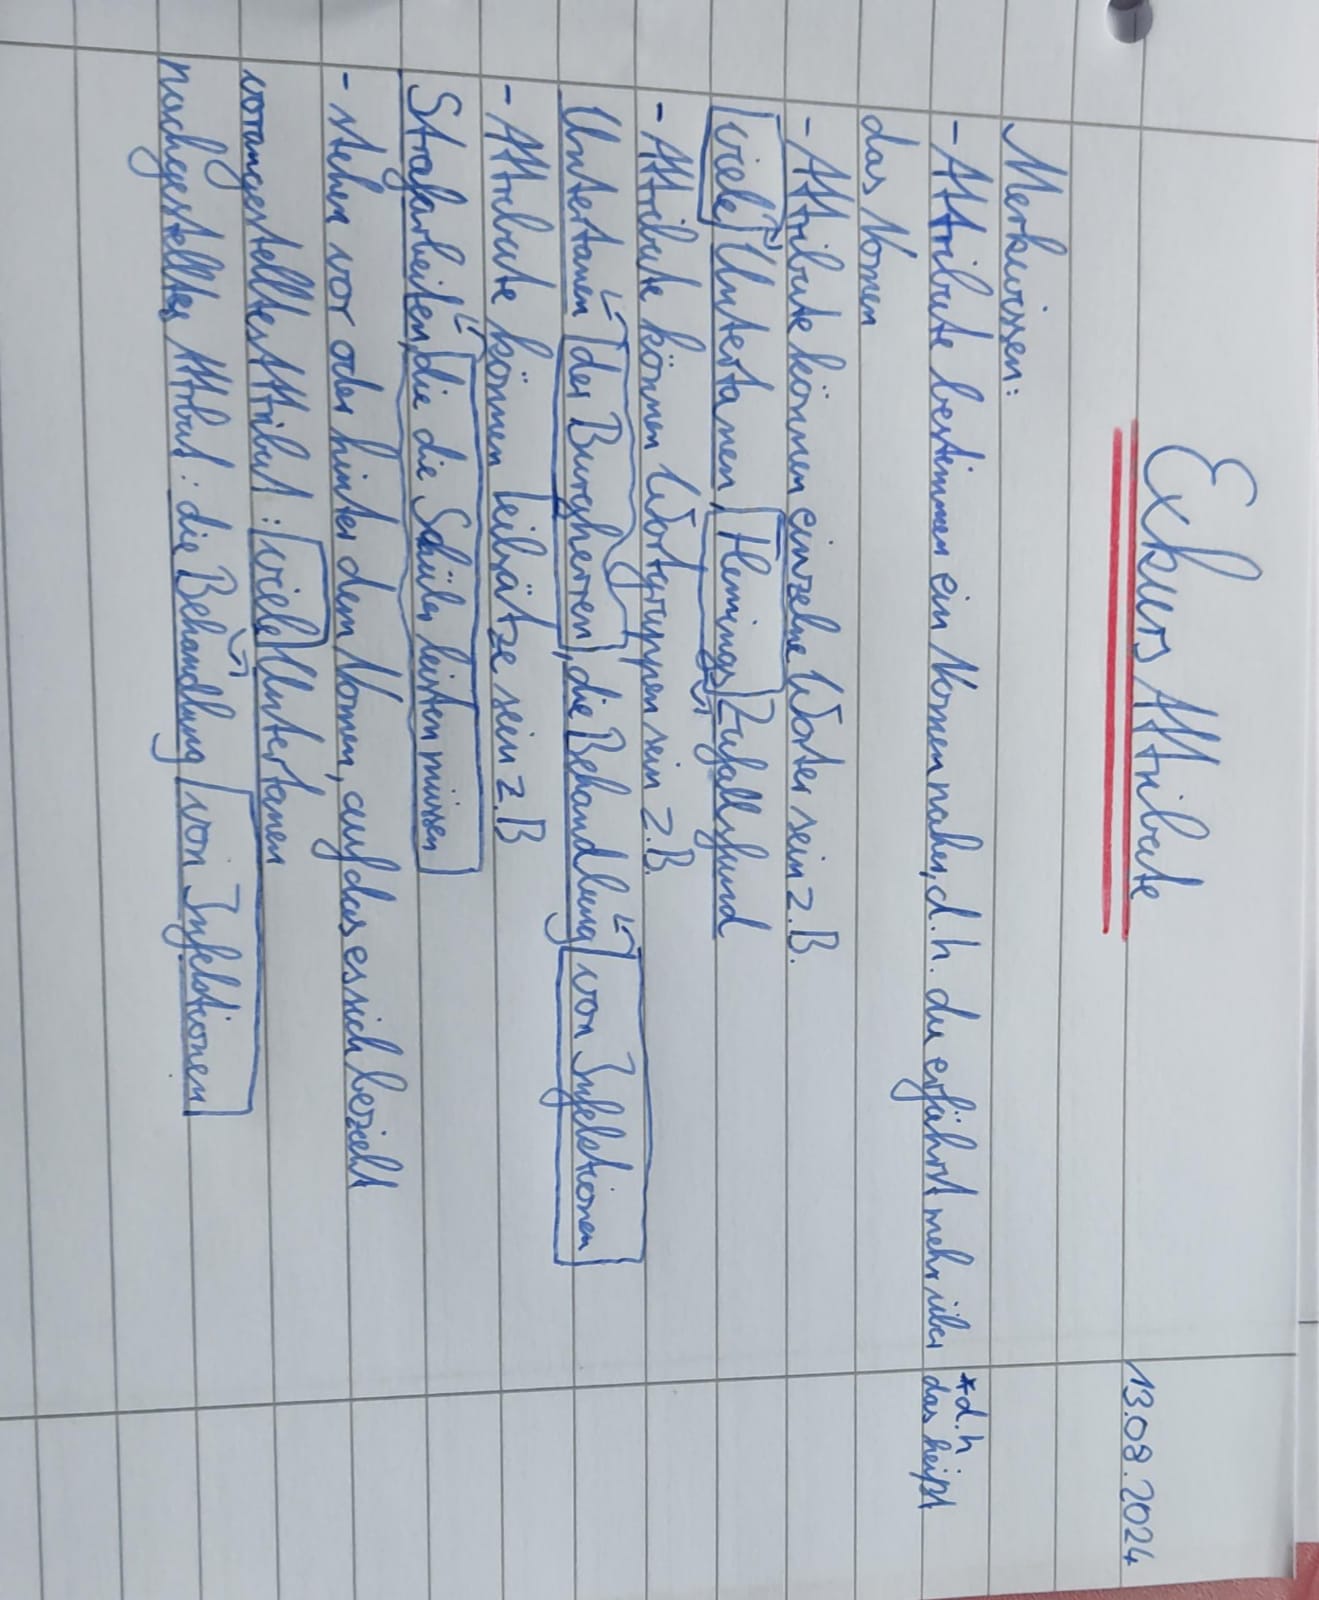 Exkurs Attribute
13.08.2024
Merkwissen:
- Attribute bestimmen ein Nomen näher, d.h. du erfährst mehr über
*d.h
das heißt
das Nomen
- Attribute können einzelne Wörter sein z.B.
viele Untertanen, Flemings Zufallsfund
- Attribute können Wortgruppen sein z.B.
Untertanen der Burgherren, die Behandlung von Infektionen
- Attribute können teilsätze sein z.B
Strafarbeiten, die die Schüler leisten müssen
- stehen vor oder hinter dem Nomen, auf das es sich bezieht
vorangestelltes Attribut: viele Untertanen
nachgestelltes Attribut: die Behandlung von Infektionen